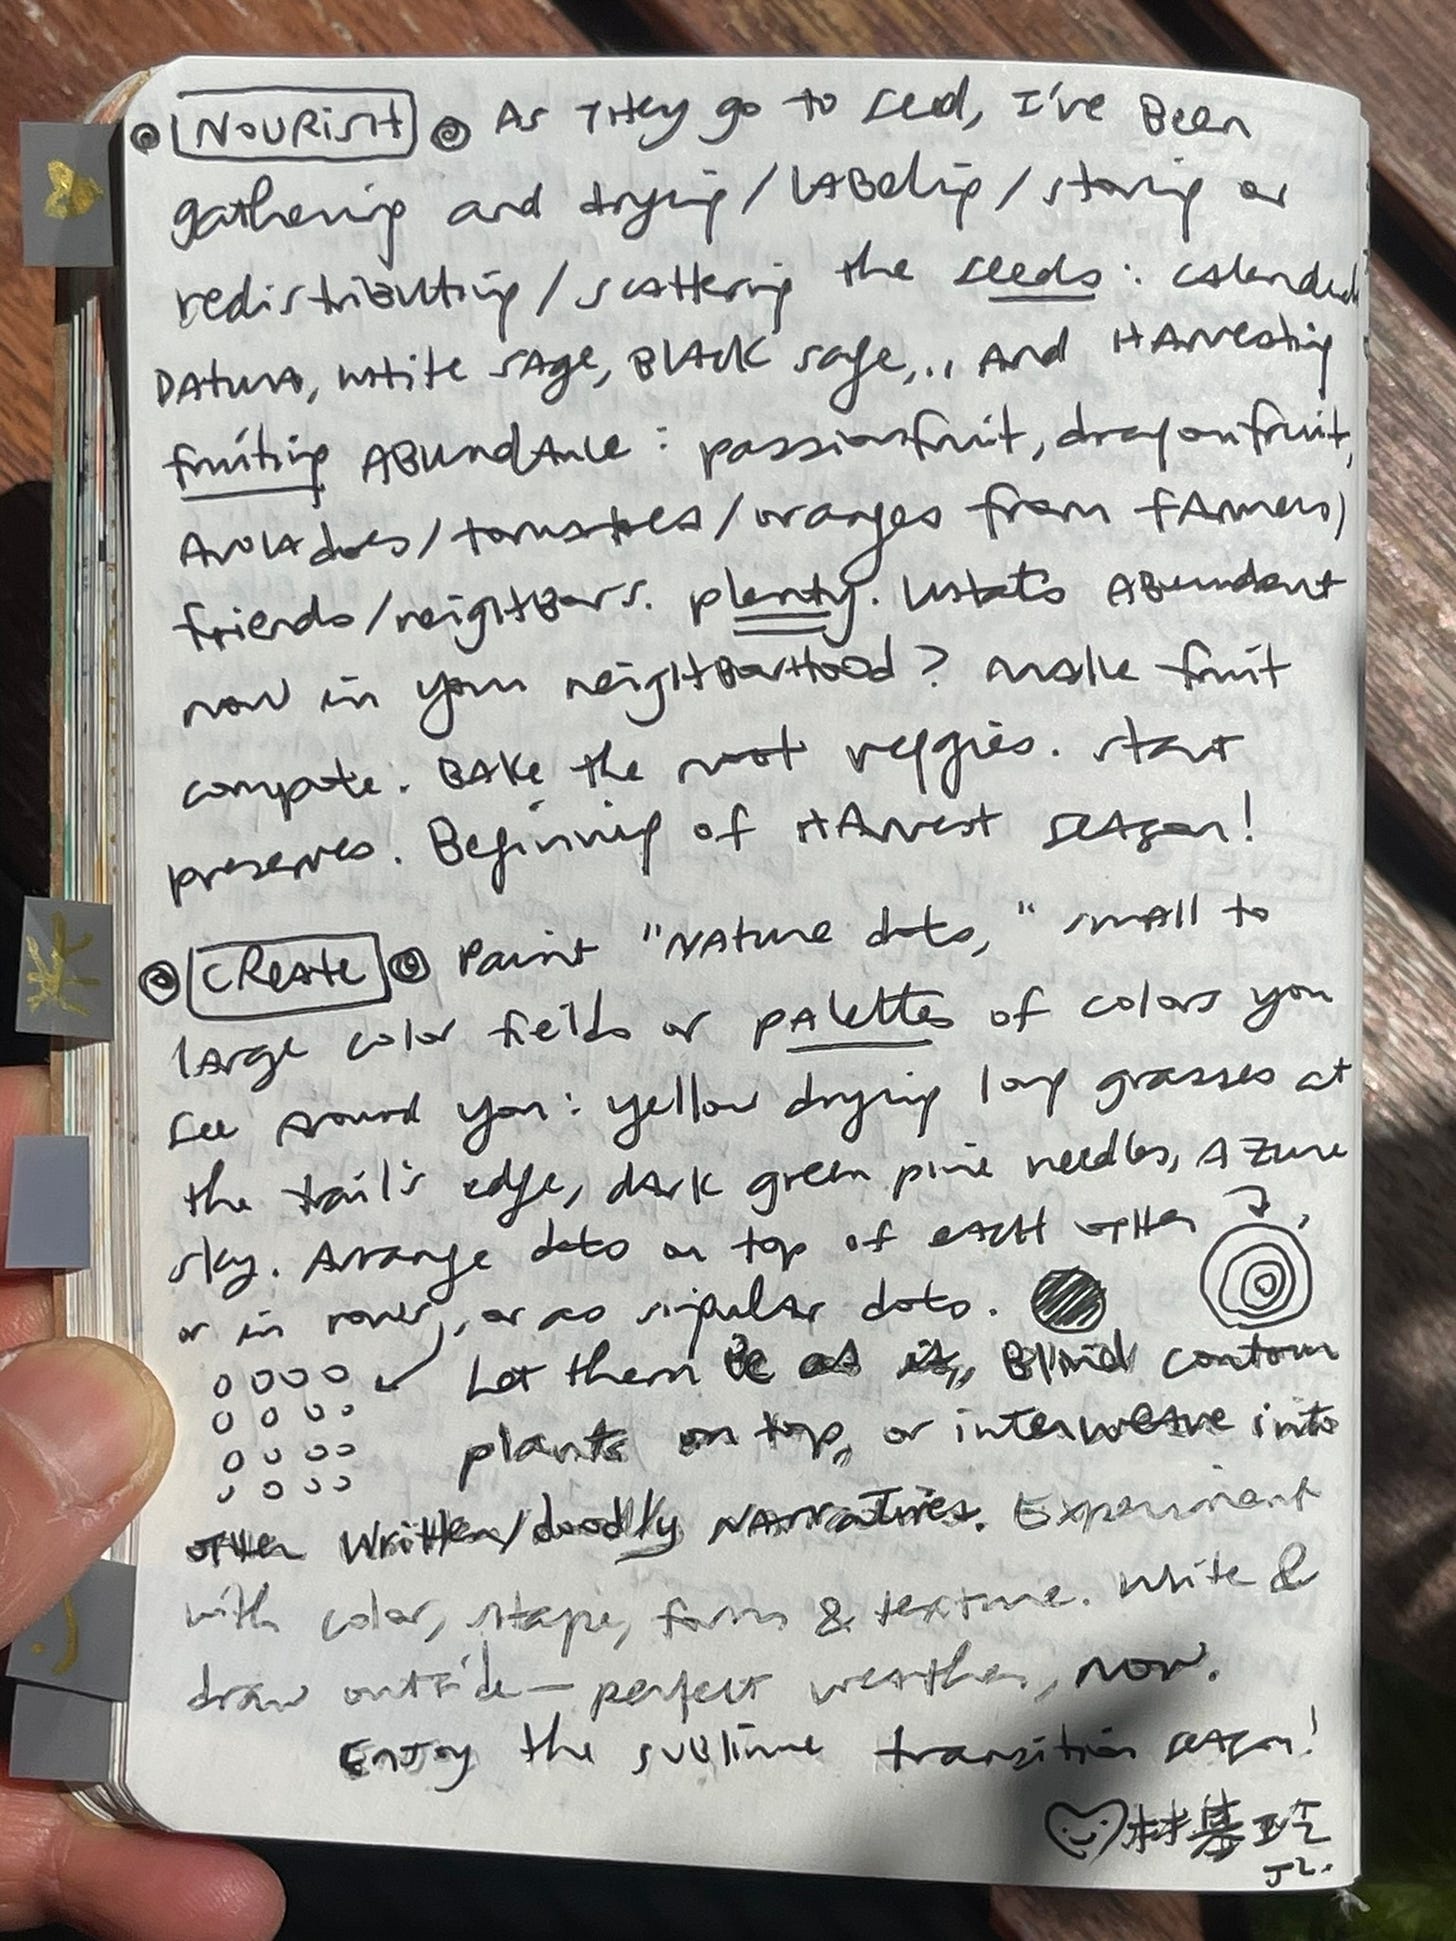 NOURISH As they go to seed, I've Been
gathering and drying/labeling/storing or
redistributing/scattering the seeds: calendula
Datura, white sage, Black sage,.. And Harvesting
fruiting Abundance: passionfruit, dragonfruit,
Avocadoes/tomatoes/oranges from farmers/
friends/neighbors. plenty. What's Abundant
now in your neighborhood? make fruit
compote. Bake the root veggies. start
preserves. Beginning of Harvest season!
CREATE Paint "Nature dots," small to
large color fields or palettes of colors you
see around you: yellow drying long grasses at
the trail's edge, dark green pine needles, Azure
sky. Arrange dots on top of each other ,
or in rows, or as singular dots.
Let them be as is, Blind contour
plants on top, or interweave into
other written/doodly Narratives. Experiment
with color, shape, form & texture. Write &
draw outside— perfect weather, now.
Enjoy the sublime transition season!
林基
JL.